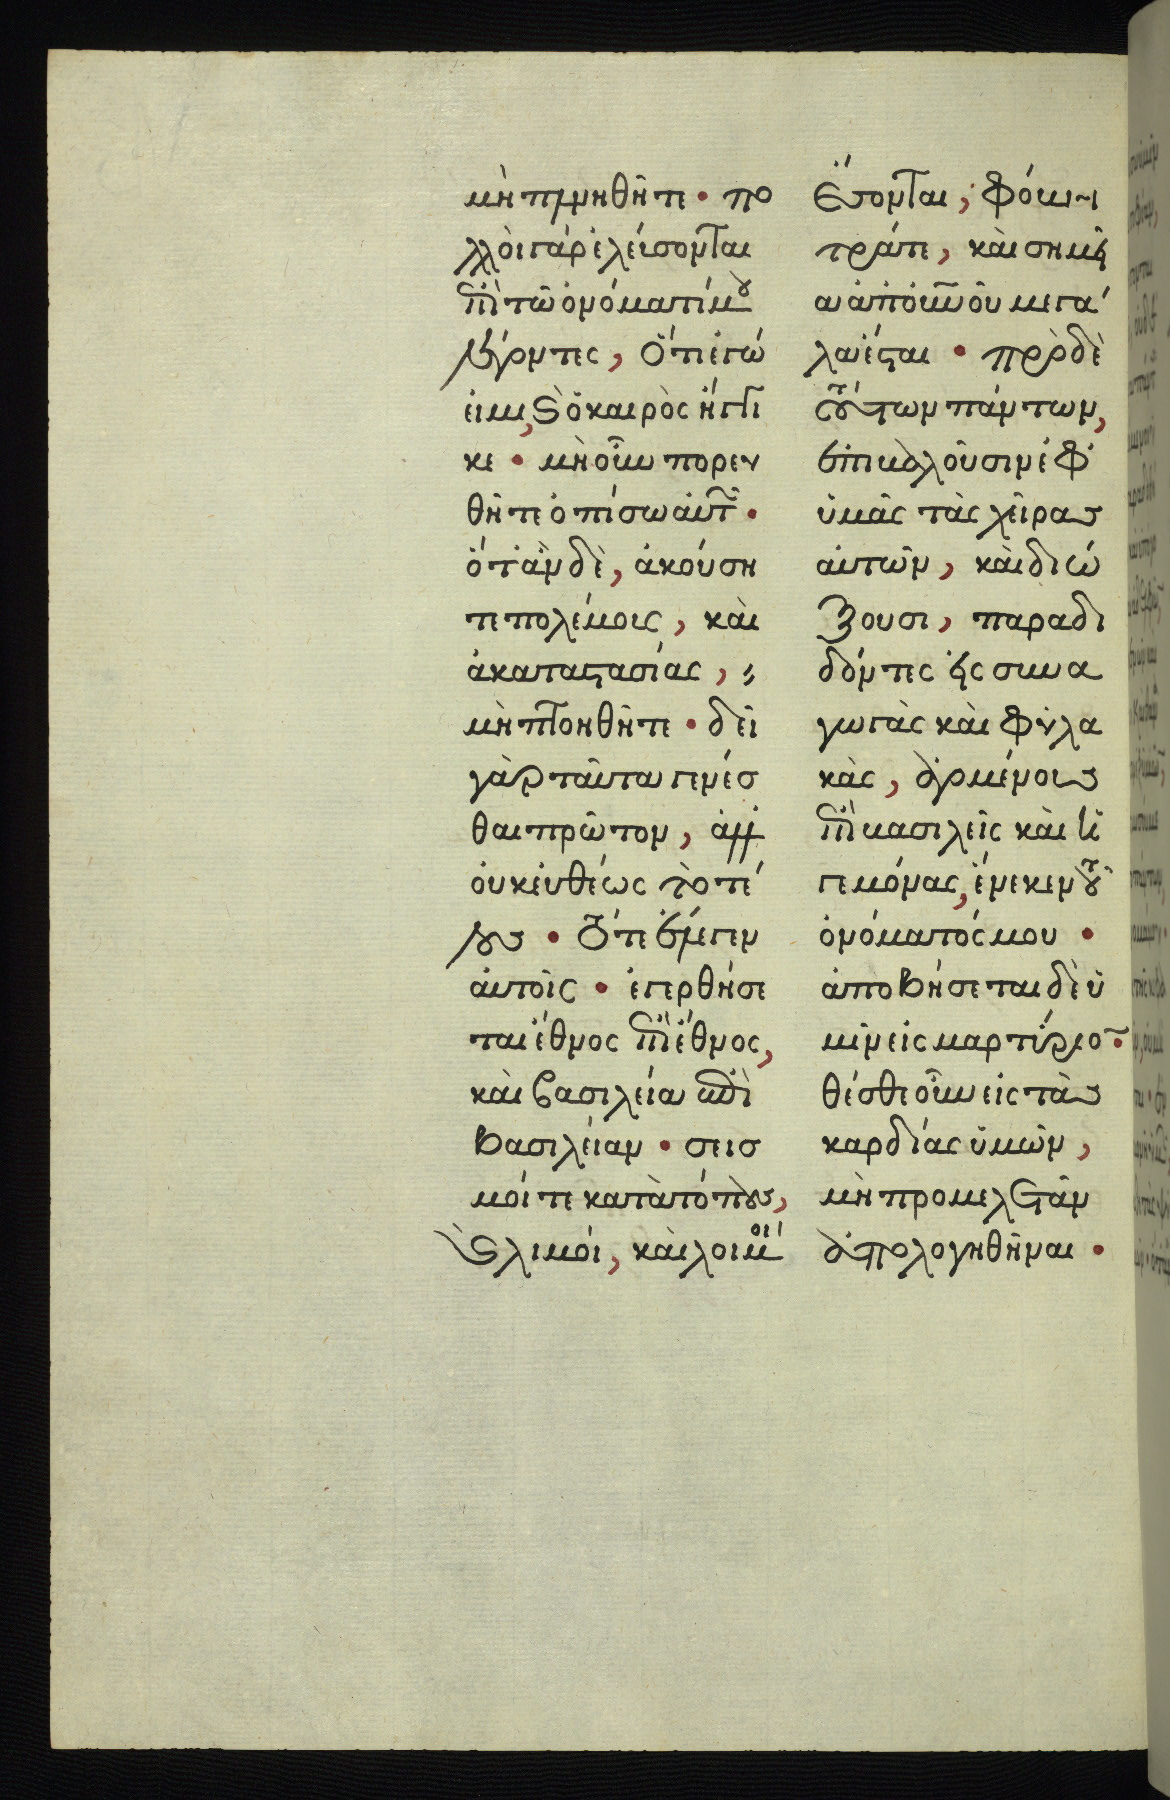 μὴ πλανηθῆτε · πο
λλοὶ γὰρ ἐλεύσονται
ἐπὶ τῷ ὀνόματί μου
λέγοντες, ὅτι ἐγώ
εἰμι, καὶ ὁ καιρὸς ἤγγι
κε · μὴ οὖν πορευ
θῆτε ὀπίσω αὐτῶν ·
ὅταν δὲ, ἀκούση
τε πολέμους, καὶ
ἀκαταστασίας,
μὴ πτοηθῆτε · δεῖ
γὰρ ταῦτα γενέσ
θαι πρῶτον, ἀλλ'
οὐκ εὐθέως τὸ τέ
λος · τότε ἔλεγεν
αὐτοῖς · ἐγερθήσε
ται ἔθνος ἐπὶ ἔθνος,
καὶ βασιλεία ἐπὶ
βασιλείαν · σεισ
μοί τε κατὰ τόπους,
καὶ λιμοί, καὶ λοιμοὶ
ἔσονται, φόβη
τρά τε, καὶ σημεῖ
α ἀπ' οὐρανοῦ μεγά
λα ἔσται · πρὸ δὲ
τούτων πάντων,
ἐπιβαλοῦσιν ἐφ'
ὑμᾶς τὰς χεῖρας
αὐτῶν, καὶ διώ
ξουσι, παραδι
δόντες εἰς συνα
γωγὰς καὶ φυλα
κὰς, ἀγομένους
ἐπὶ βασιλεῖς καὶ ἡ
γεμόνας, ἕνεκεν τοῦ
ὀνόματός μου ·
ἀποβήσεται δὲ ὑ
μῖν εἰς μαρτύριον ·
θέσθε οὖν εἰς τὰς
καρδίας ὑμῶν,
μὴ προμελετᾶν
ἀπολογηθῆναι ·